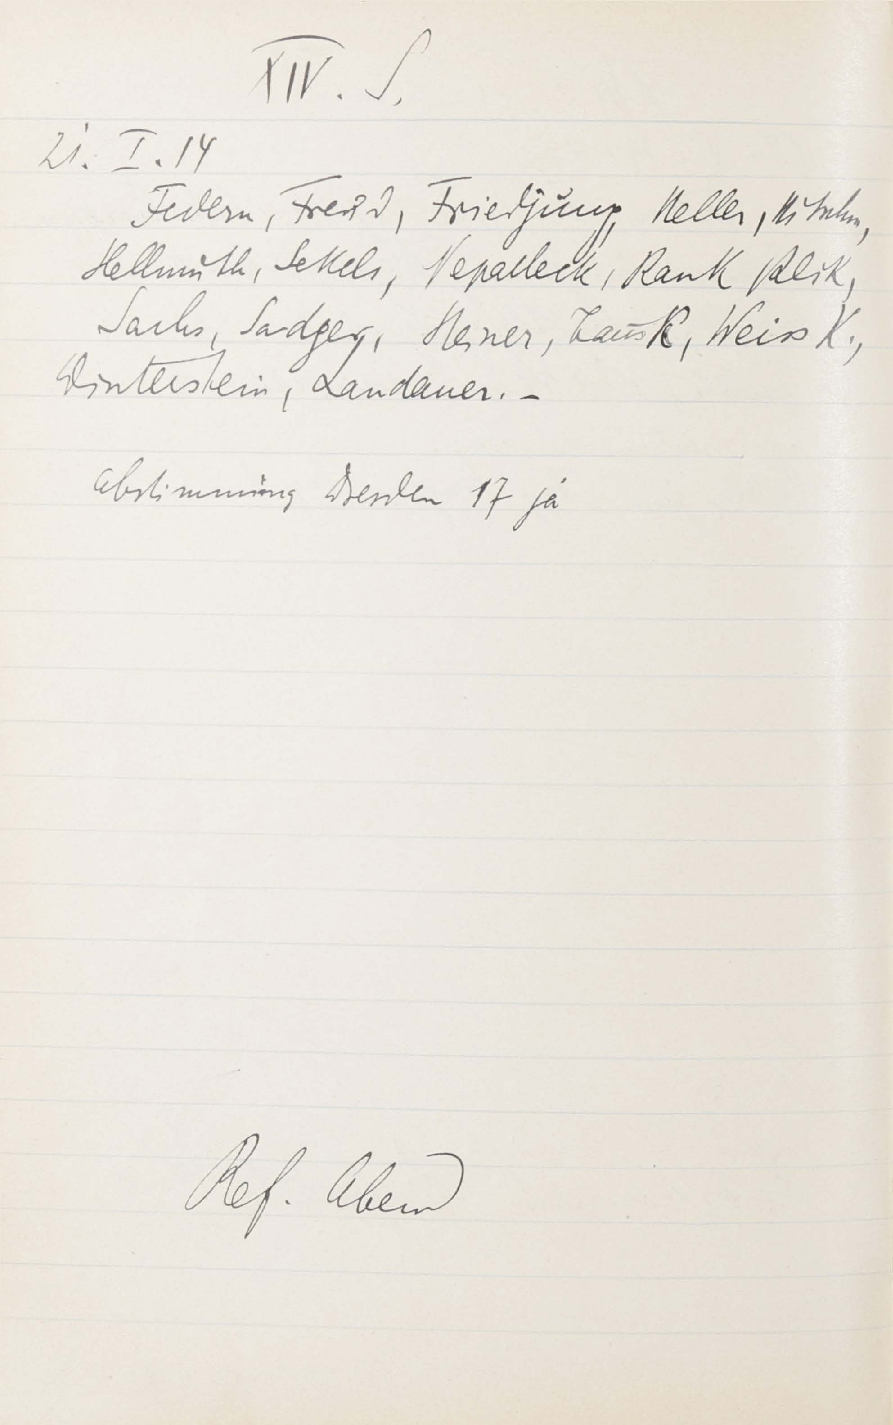 XIV. S.
21. I. 14
Federn, Freud, Friedjung, Heller, Hitschm,
Hellmuth, Jekels, Nepalleck, Rank, Reik,
Sachs, Sadger, Steiner, Tausk, Weiss K.,
Winterstein, Landauer. –
Abstimmung Dresden 17 ja
Ref. Abend